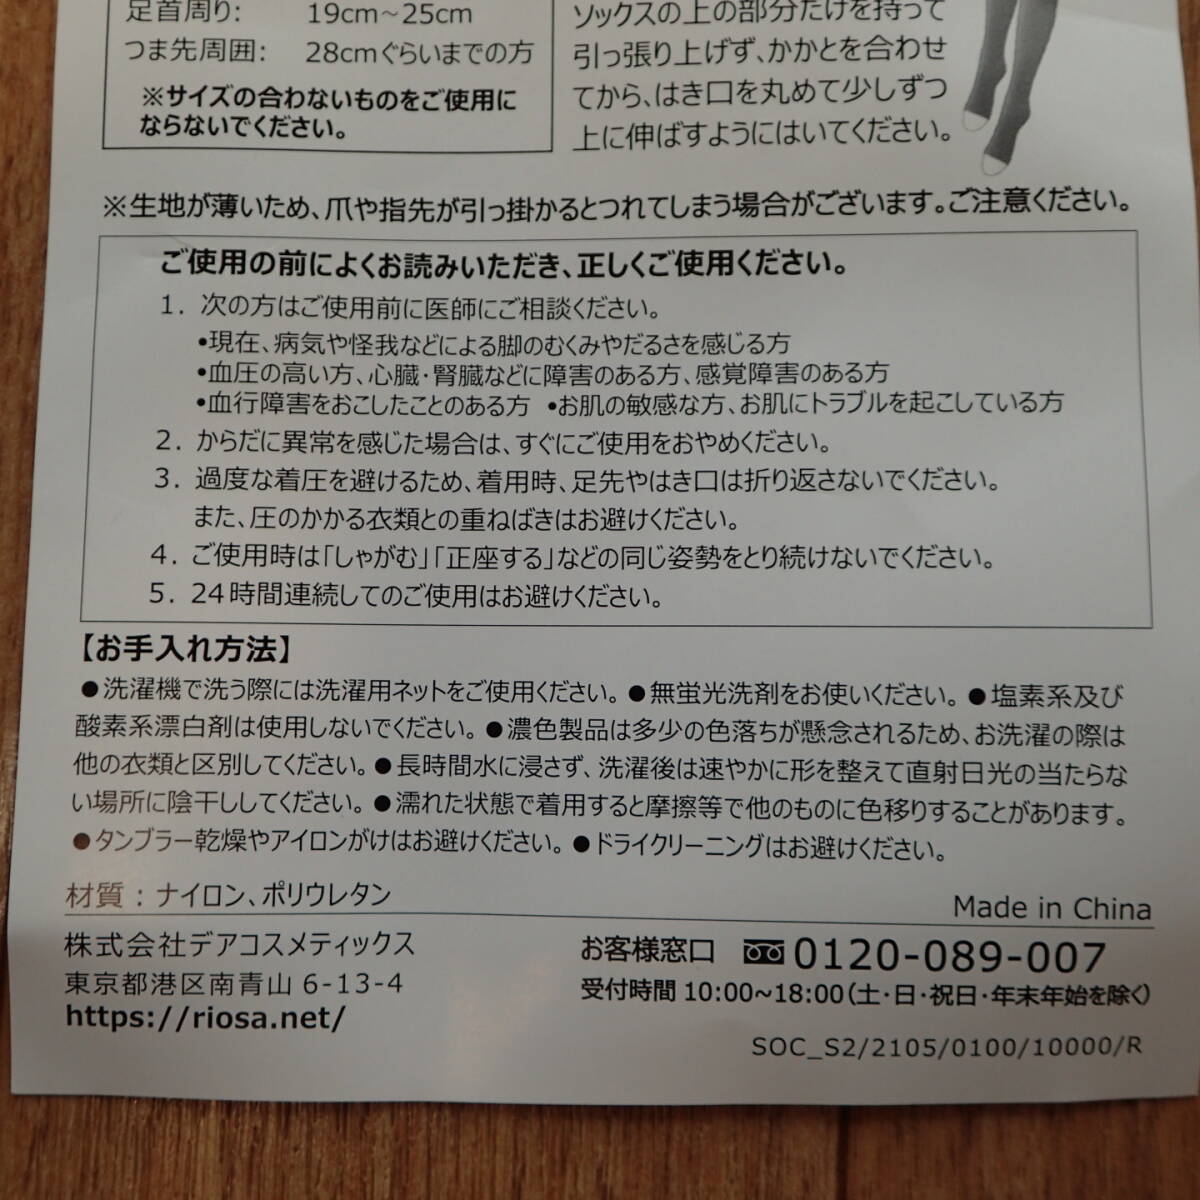 足首周り: 19cm~25cm
つま先周囲: 28cmぐらいまでの方
※サイズの合わないものをご使用に
ならないでください。
ソックスの上の部分だけを持って
引っ張り上げず、かかとを合わせ
てから、はき口を丸めて少しずつ
上に伸ばすようにはいてください。
※生地が薄いため、爪や指先が引っ掛かるとつれてしまう場合がございます。ご注意ください。
ご使用の前によくお読みいただき、正しくご使用ください。
1. 次の方はご使用前に医師にご相談ください。
•現在、病気や怪我などによる脚のむくみやだるさを感じる方
•血圧の高い方、心臓・腎臓などに障害のある方、感覚障害のある方
•血行障害をおこしたことのある方 •お肌の敏感な方、お肌にトラブルを起こしている方
2. からだに異常を感じた場合は、すぐにご使用をおやめください。
3. 過度な着圧を避けるため、着用時、足先やはき口は折り返さないでください。
また、圧のかかる衣類との重ねばきはお避けください。
4. ご使用時は「しゃがむ」「正座する」などの同じ姿勢をとり続けないでください。
5. 24時間連続してのご使用はお避けください。
【お手入れ方法】
●洗濯機で洗う際には洗濯用ネットをご使用ください。●無蛍光洗剤をお使いください。●塩素系及び
酸素系漂白剤は使用しないでください。●濃色製品は多少の色落ちが懸念されるため、お洗濯の際は
他の衣類と区別してください。●長時間水に浸さず、洗濯後は速やかに形を整えて直射日光の当たらな
い場所に陰干ししてください。●濡れた状態で着用すると摩擦等で他のものに色移りすることがあります。
●タンブラー乾燥やアイロンがけはお避けください。●ドライクリーニングはお避けください。
材質：ナイロン、ポリウレタン
Made in China
株式会社デアコスメティックス
東京都港区南青山 6-13-4
https://riosa.net/
お客様窓口 0120-089-007
受付時間 10:00~18:00(土・日・祝日・年末年始を除く)
SOC_S2/2105/0100/10000/R